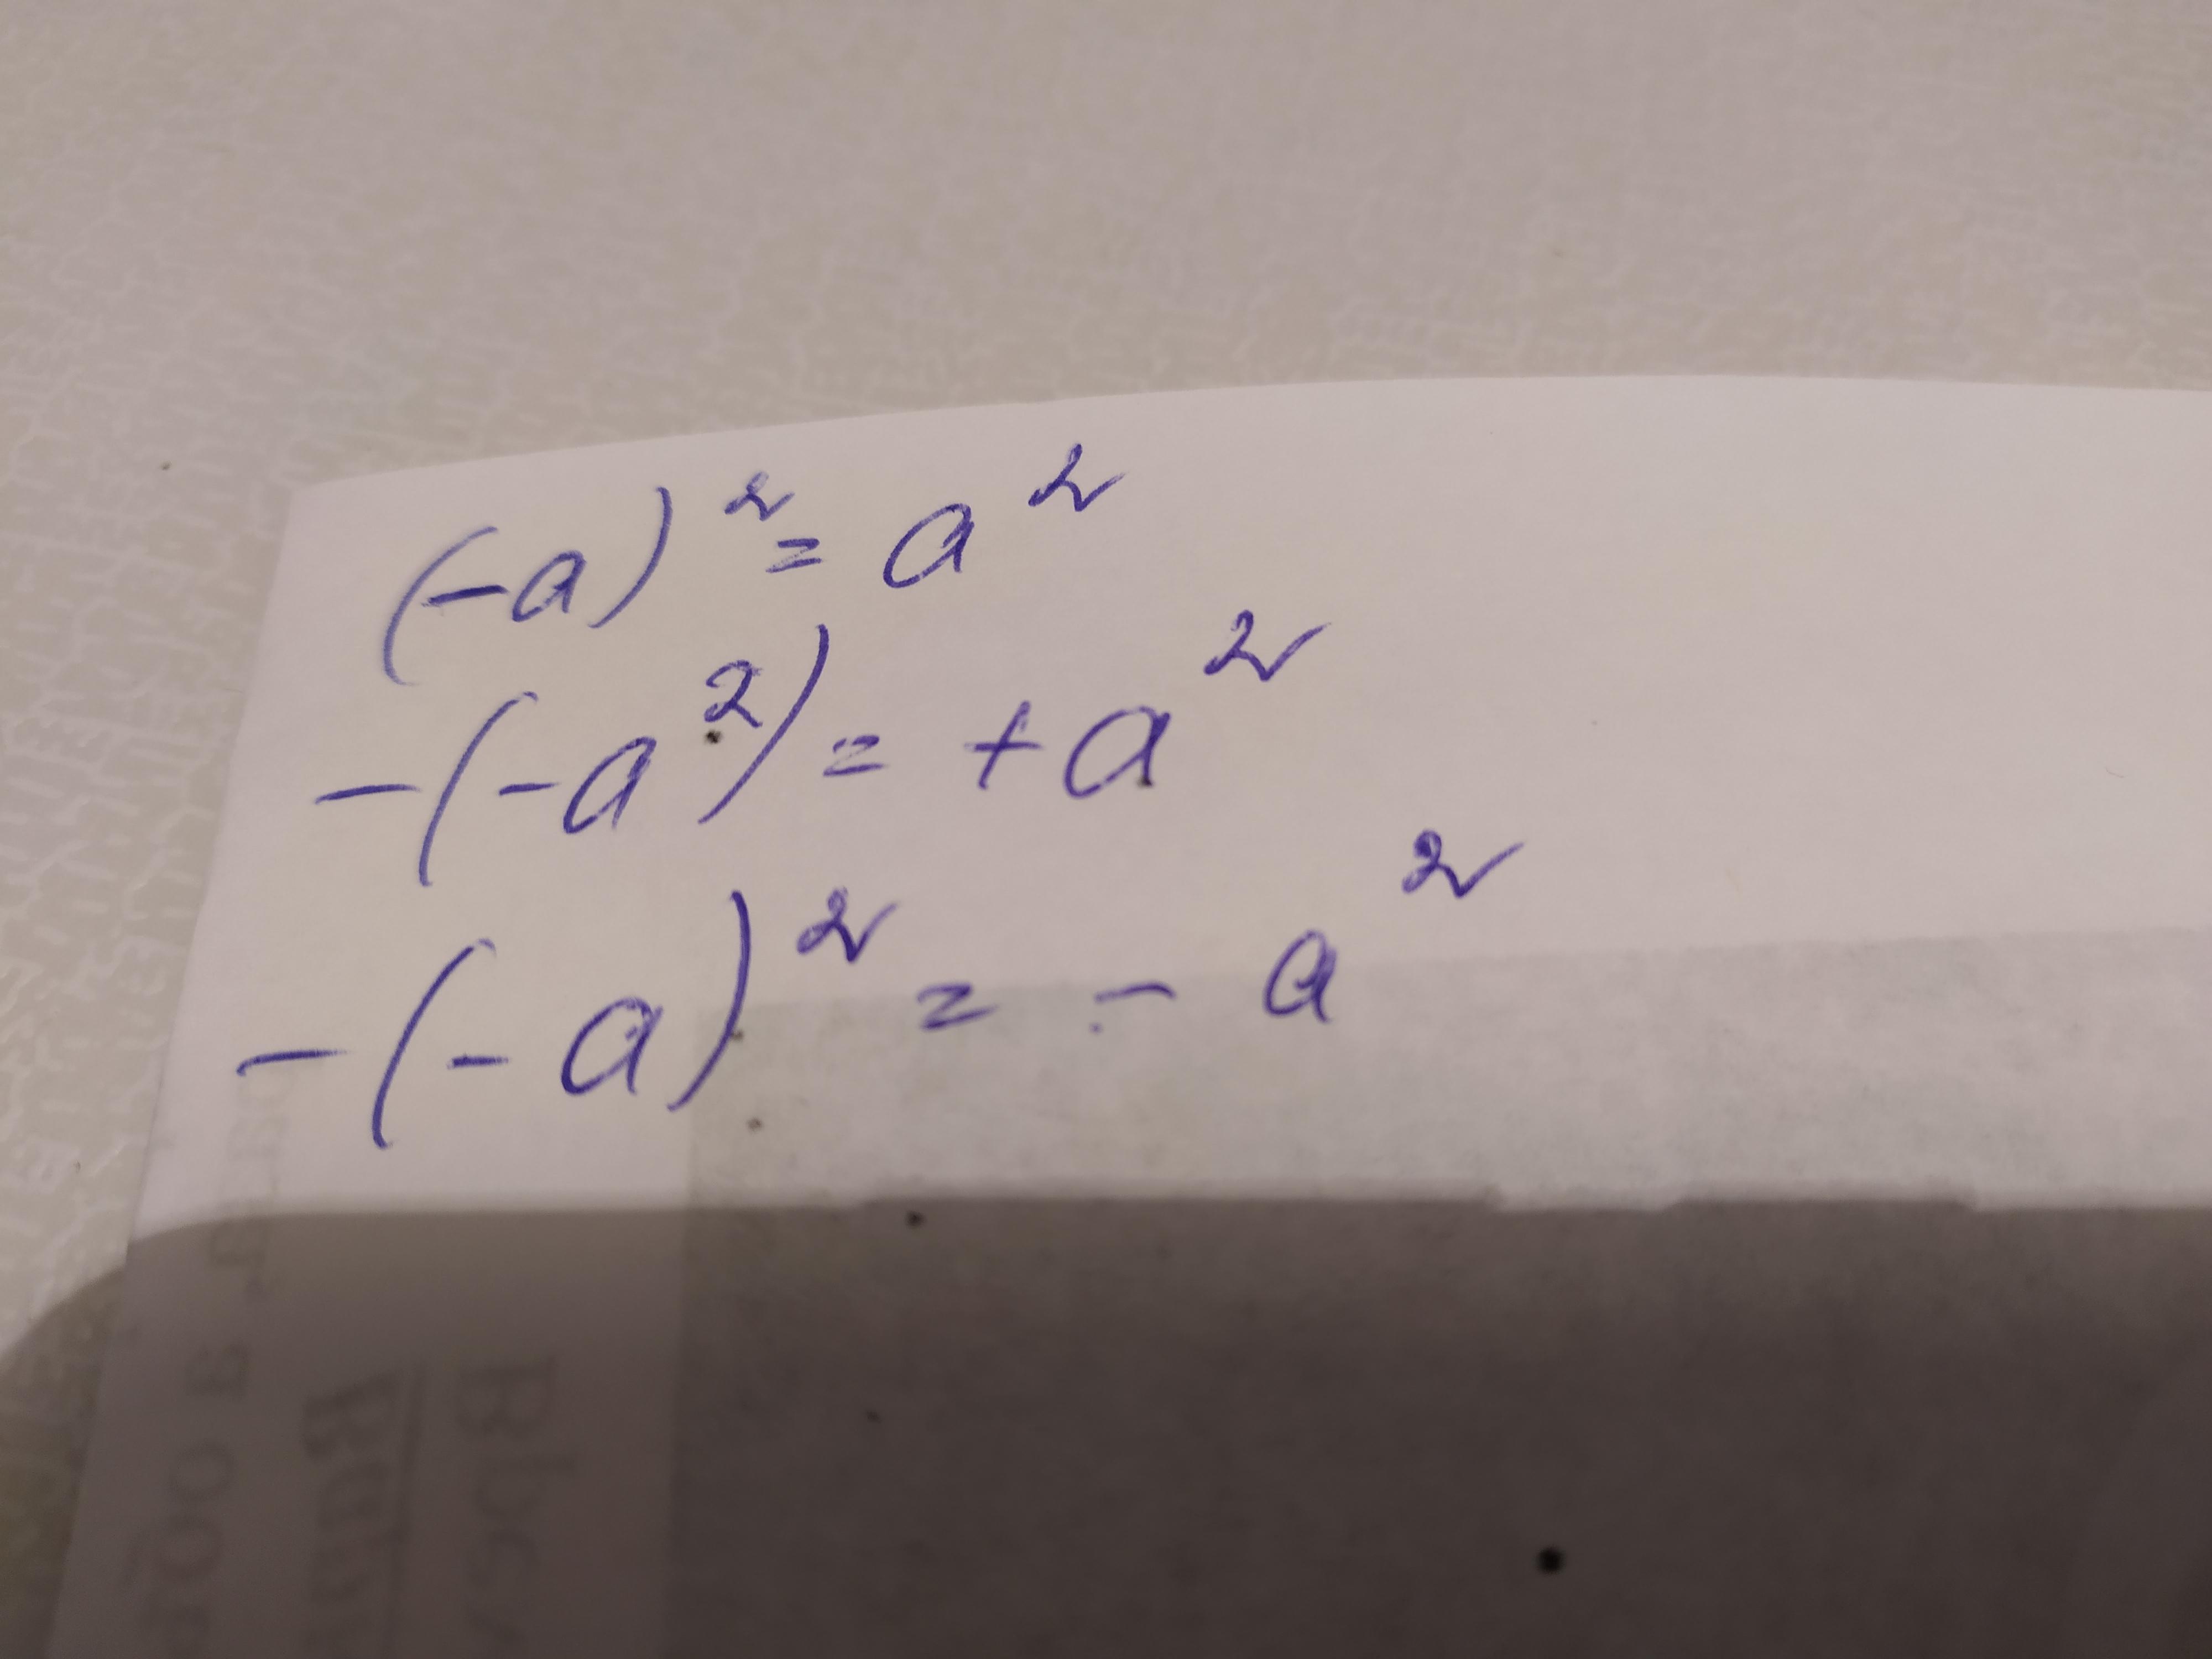 (-a)² = a²
-(-a²) = +a²
-(-a)² = - a²